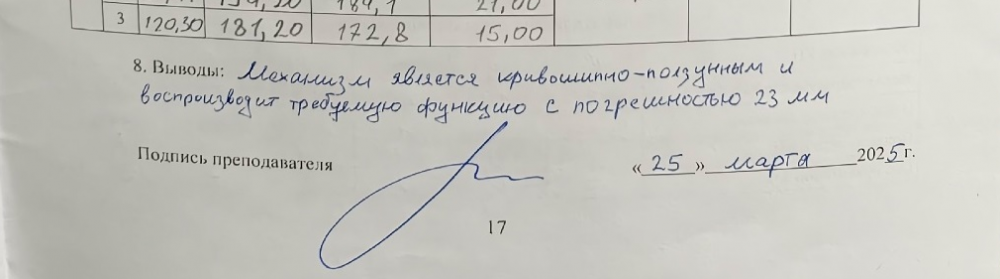 184,1 21,00
3 120,30 181,20 172,8 15,00
8. Выводы: Механизм является кривошипно-ползунным и
воспроизводит требуемую функцию с погрешностью 23 мм
Подпись преподавателя «25» марта 2025 г.
17